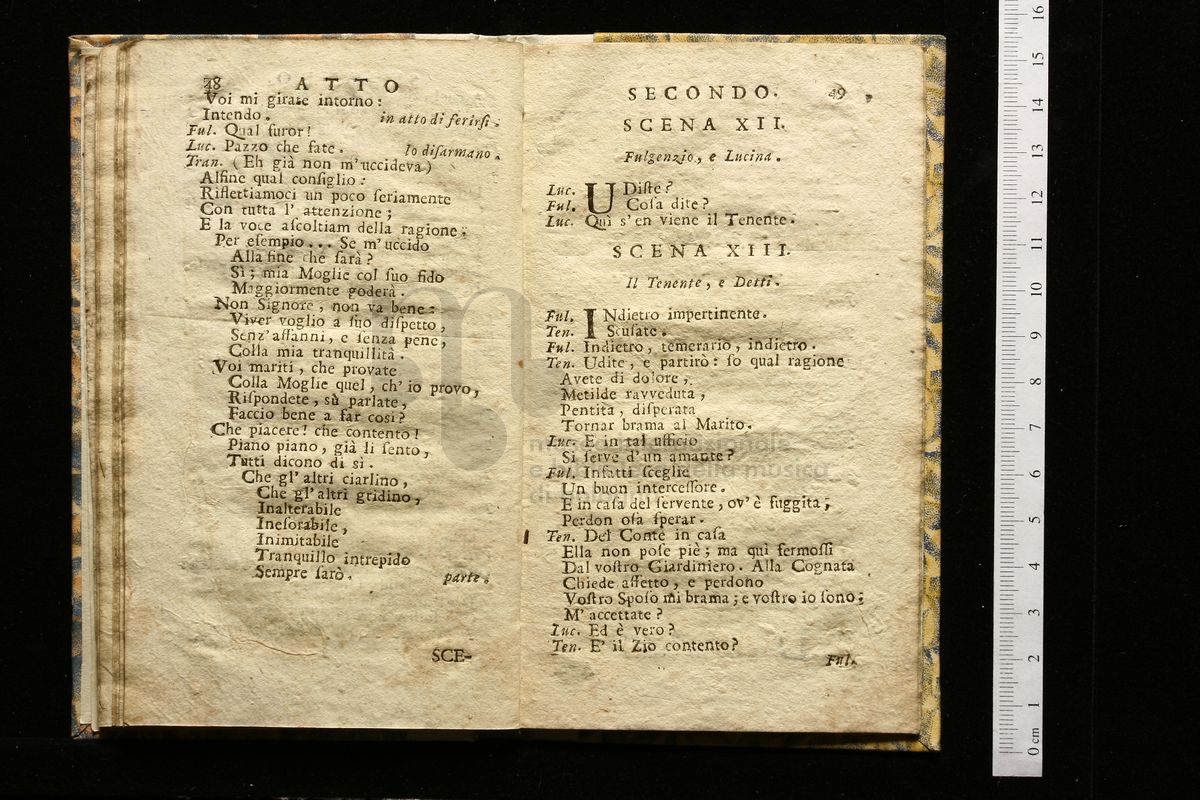 48 ATTO
Voi mi girate intorno:
Intendo. in atto di ferirſi.
Ful. Qual furor!
Luc. Pazzo che fate. lo diſarmano.
Tran. (Eh già non m'uccideva)
Alfine qual conſiglio:
Riflettiamoci un poco ſeriamente
Con tutta l' attenzione;
E la voce aſcoltiam della ragione:
Per eſempio... Se m'uccido
Alla fine che ſarà?
Sì; mia Moglie col ſuo fido
Maggiormente goderà.
Non Signore, non va bene:
Viver voglio a ſuo diſpetto,
Senz'affanni, e ſenza pene,
Colla mia tranquillità.
Voi mariti, che provate
Colla Moglie quel, ch' io provo,
Riſpondete, sù parlate,
Faccio bene a far così?
Che piacere! che contento!
Piano piano, già li ſento,
Tutti dicono di sì.
Che gl'altri ciarlino,
Che gl'altri gridino,
Inalterabile
Ineſorabile,
Inimitabile
Tranquillo intrepido
Sempre ſarò. parte.
SCE-
SECONDO. 49
SCENA XII.
Fulgenzio, e Lucina.
Luc. UDiſte?
Ful. Coſa dite?
Luc. Quì s'en viene il Tenente.
SCENA XIII.
Il Tenente, e Detti.
Ful. INdietro impertinente.
Ten. Scuſate.
Ful. Indietro, temerario, indietro.
Ten. Udite, e partirò: ſo qual ragione
Avete di dolore,
Metilde ravveduta,
Pentita, diſperata
Tornar brama al Marito.
Luc. E in tal uffìcio
Si ſerve d'un amante?
Ful. Infatti ſceglie
Un buon interceſſore.
E in caſa del ſervente, ov'è fuggita,
Perdon oſa ſperar.
Ten. Del Conte in caſa
Ella non poſe piè; ma quì fermoſſi
Dal voſtro Giardiniero. Alla Cognata
Chiede affetto, e perdono
Voſtro Spoſo mi brama; e voſtro io ſono;
M' accettate?
Luc. Ed è vero?
Ten. E' il Zio contento?
Ful.
0 cm 1 2 3 4 5 6 7 8 9 10 11 12 13 14 15 16